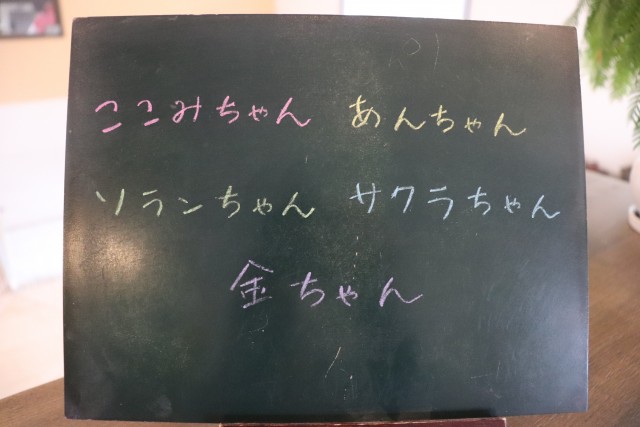 ここみちゃん あんちゃん
ソランちゃん サクラちゃん
金ちゃん